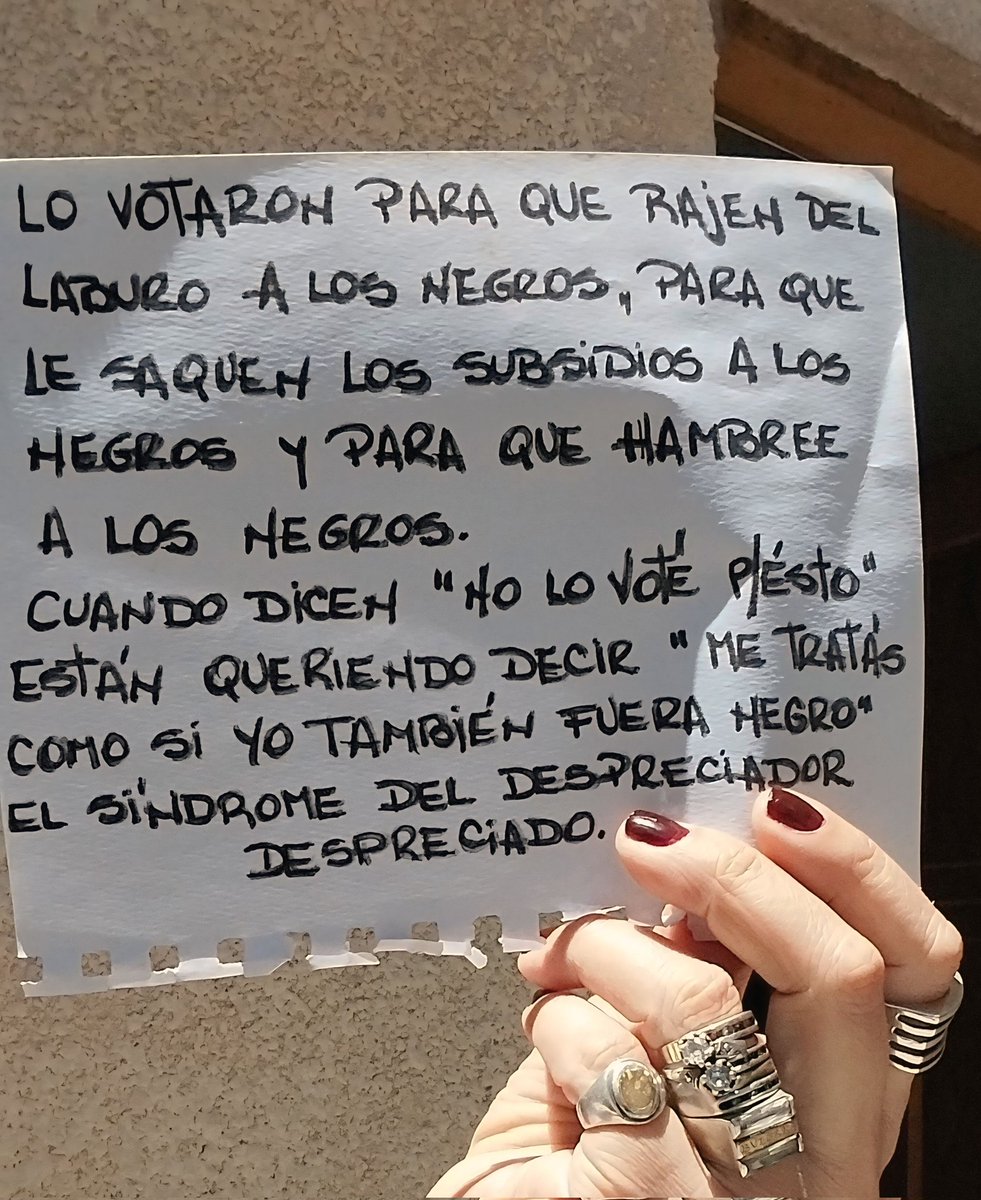 LO VOTARON PARA QUE RAJEN DEL
LABURO A LOS NEGROS, PARA QUE
LE SAQUEN LOS SUBSIDIOS A LOS
NEGROS Y PARA QUE HAMBREE
A LOS NEGROS.
CUANDO DICEN "NO LO VOTÉ P/ÉSTO"
ESTÁN QUERIENDO DECIR "ME TRATÁS
COMO SI YO TAMBIÉN FUERA NEGRO"
EL SÍNDROME DEL DESPRECIADOR
DESPRECIADO.